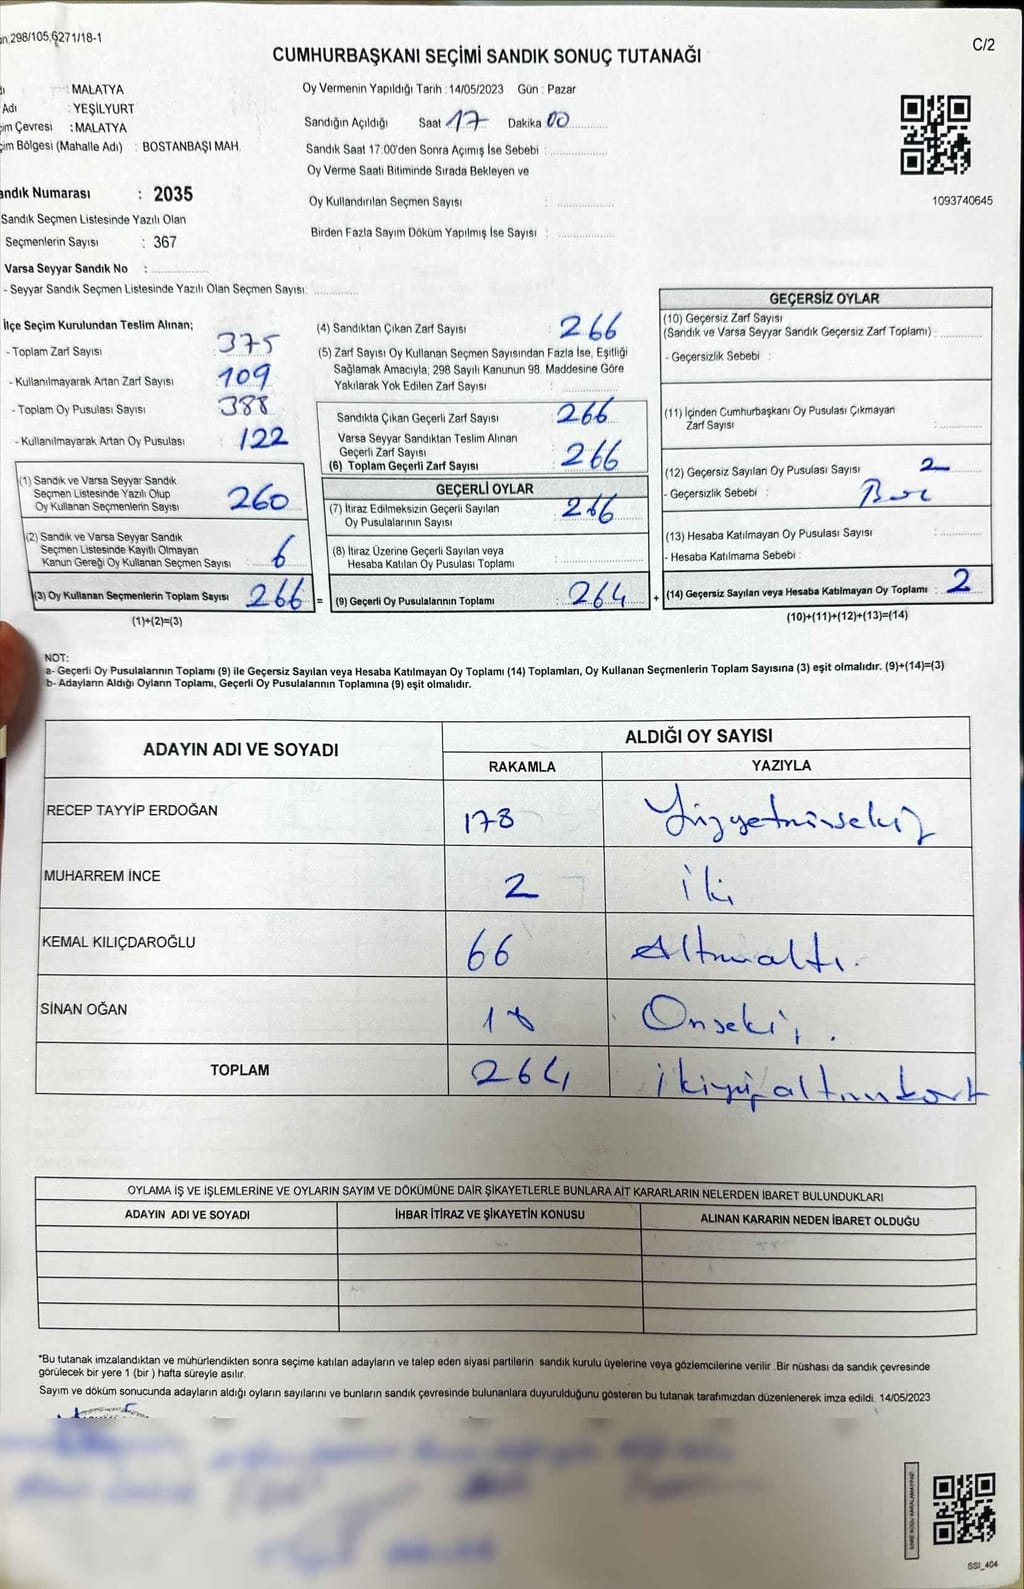 298/105,6271/18-1
C/2
CUMHURBAŞKANI SEÇİMİ SANDIK SONUÇ TUTANAĞI
: MALATYA
Adı : YEŞİLYURT
Çevresi : MALATYA
Bölgesi (Mahalle Adı) : BOSTANBAŞI MAH.
Sandık Numarası : 2035
Sandık Seçmen Listesinde Yazılı Olan
Seçmenlerin Sayısı : 367
Varsa Seyyar Sandık No :
- Seyyar Sandık Seçmen Listesinde Yazılı Olan Seçmen Sayısı:
Oy Vermenin Yapıldığı Tarih : 14/05/2023 Gün : Pazar
Sandığın Açıldığı Saat 17 Dakika 00
Sandık Saat 17:00'den Sonra Açımış İse Sebebi :
Oy Verme Saati Bitiminde Sırada Bekleyen ve
Oy Kullandırılan Seçmen Sayısı :
Birden Fazla Sayım Döküm Yapılmış İse Sayısı :
1093740645
İlçe Seçim Kurulundan Teslim Alınan;
- Toplam Zarf Sayısı : 375
- Kullanılmayarak Artan Zarf Sayısı : 109
- Toplam Oy Pusulası Sayısı : 388
- Kullanılmayarak Artan Oy Pusulası : 122
(1) Sandık ve Varsa Seyyar Sandık
Seçmen Listesinde Yazılı Olup
Oy Kullanan Seçmenlerin Sayısı : 260
(2) Sandık ve Varsa Seyyar Sandık
Seçmen Listesinde Kayıtlı Olmayan
Kanun Gereği Oy Kullanan Seçmen Sayısı : 6
(3) Oy Kullanan Seçmenlerin Toplam Sayısı : 266 =
(1)+(2)=(3)
(4) Sandıktan Çıkan Zarf Sayısı : 266
(5) Zarf Sayısı Oy Kullanan Seçmen Sayısından Fazla İse, Eşitliği
Sağlamak Amacıyla; 298 Sayılı Kanunun 98. Maddesine Göre
Yakılarak Yok Edilen Zarf Sayısı :
Sandıkta Çıkan Geçerli Zarf Sayısı : 266
Varsa Seyyar Sandıktan Teslim Alınan
Geçerli Zarf Sayısı :
(6) Toplam Geçerli Zarf Sayısı : 266
GEÇERLİ OYLAR
(7) İtiraz Edilmeksizin Geçerli Sayılan
Oy Pusulalarının Sayısı : 266
(8) İtiraz Üzerine Geçerli Sayılan veya
Hesaba Katılan Oy Pusulası Toplamı :
(9) Geçerli Oy Pusulalarının Toplamı : 264 +
GEÇERSİZ OYLAR
(10) Geçersiz Zarf Sayısı
(Sandık ve Varsa Seyyar Sandık Geçersiz Zarf Toplamı) :
- Geçersizlik Sebebi :
(11) İçinden Cumhurbaşkanı Oy Pusulası Çıkmayan
Zarf Sayısı :
(12) Geçersiz Sayılan Oy Pusulası Sayısı : 2
- Geçersizlik Sebebi :
(13) Hesaba Katılmayan Oy Pusulası Sayısı :
- Hesaba Katılmama Sebebi :
(14) Geçersiz Sayılan veya Hesaba Katılmayan Oy Toplamı : 2
(10)+(11)+(12)+(13)=(14)
NOT:
a- Geçerli Oy Pusulalarının Toplamı (9) ile Geçersiz Sayılan veya Hesaba Katılmayan Oy Toplamı (14) Toplamları, Oy Kullanan Seçmenlerin Toplam Sayısına (3) eşit olmalıdır. (9)+(14)=(3)
b- Adayların Aldığı Oyların Toplamı, Geçerli Oy Pusulalarının Toplamına (9) eşit olmalıdır.
ADAYIN ADI VE SOYADI ALDIĞI OY SAYISI
RAKAMLA YAZIYLA
RECEP TAYYİP ERDOĞAN 178 Yüzyetmişsekiz
MUHARREM İNCE 2 iki
KEMAL KILIÇDAROĞLU 66 Altmışaltı.
SİNAN OĞAN 18 Onsekiz.
TOPLAM 264 ikiyüzaltmışdört
OYLAMA İŞ VE İŞLEMLERİNE VE OYLARIN SAYIM VE DÖKÜMÜNE DAİR ŞİKAYETLERLE BUNLARA AİT KARARLARIN NELERDEN İBARET BULUNDUKLARI
ADAYIN ADI VE SOYADI İHBAR İTİRAZ VE ŞİKAYETİN KONUSU ALINAN KARARIN NEDEN İBARET OLDUĞU
*Bu tutanak imzalandıktan ve mühürlendikten sonra seçime katılan adayların ve talep eden siyasi partilerin sandık kurulu üyelerine veya gözlemcilerine verilir .Bir nüshası da sandık çevresinde
görülecek bir yere 1 (bir ) hafta süreyle asılır.
Sayım ve döküm sonucunda adayların aldığı oyların sayılarını ve bunların sandık çevresinde bulunanlara duyurulduğunu gösteren bu tutanak tarafımızdan düzenlenerek imza edildi. 14/05/2023
KARE KODU KARALAMAYINIZ!
SSI_404